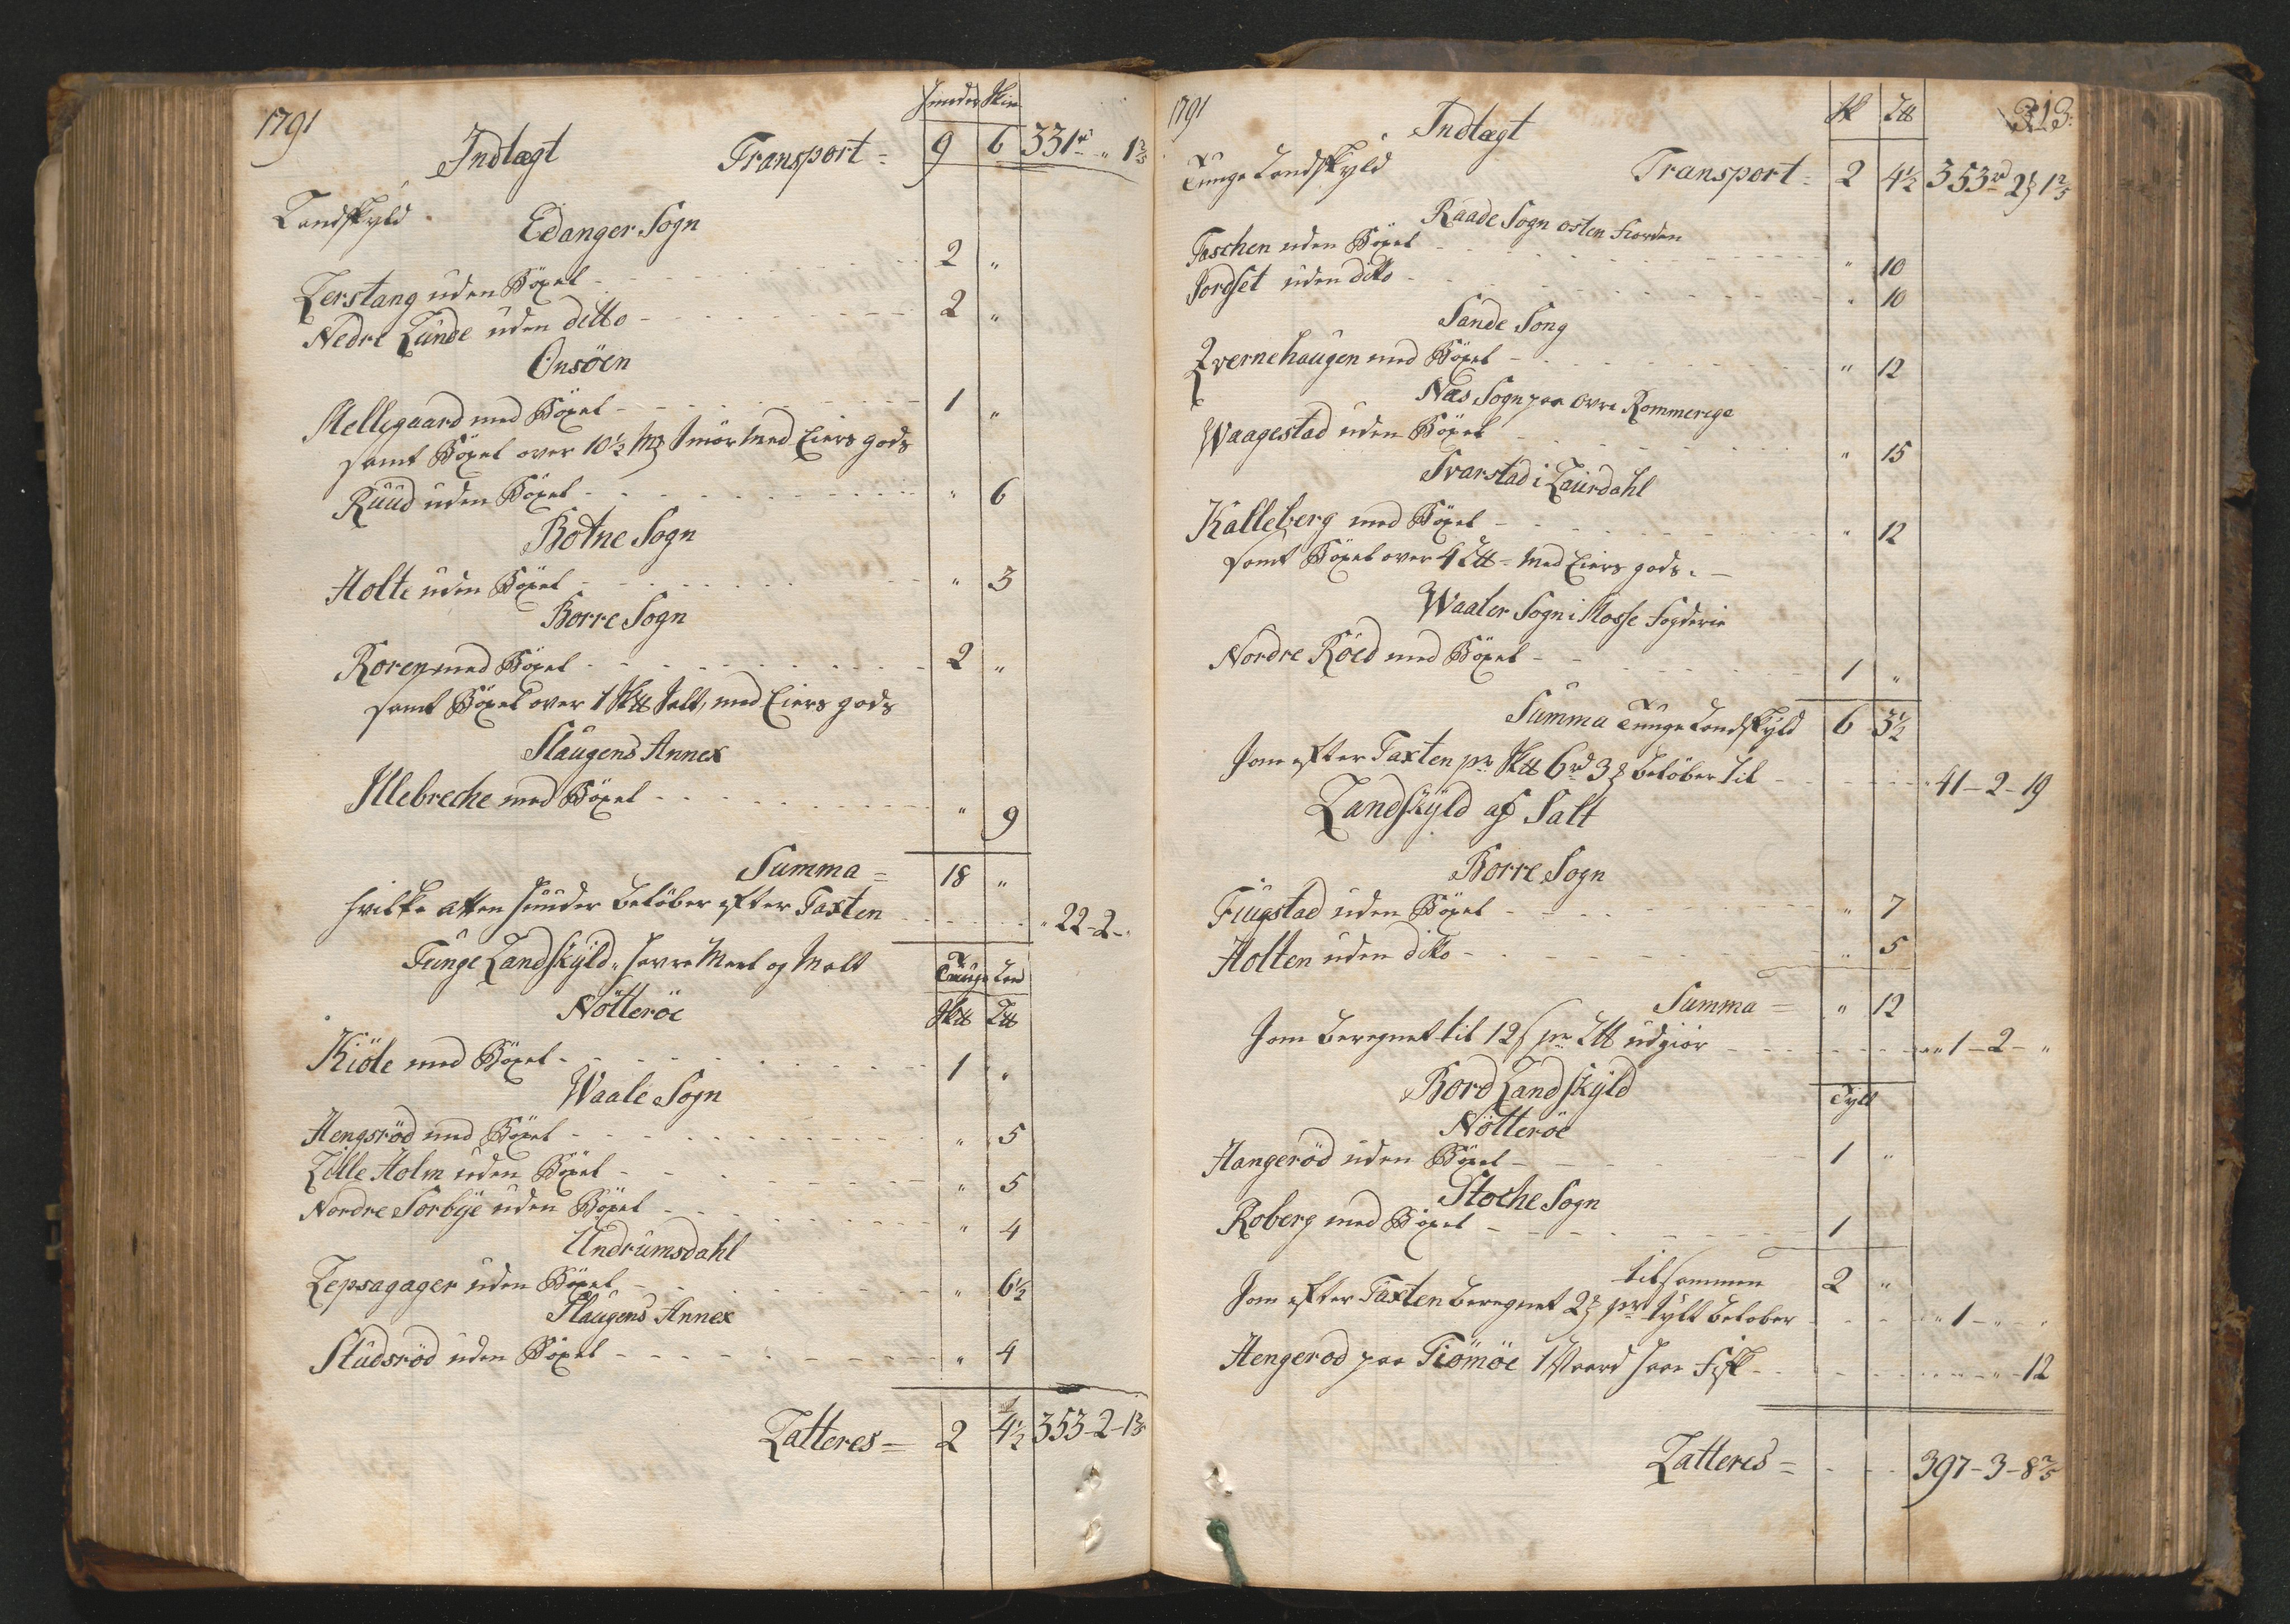 1791
Huuder Skin
Indtægt Transport = 9 6 331rd „ 1 2/5
Landskyld
Edanger Sogn
Lerstang uden Böxel - 2 „
Nedre Lunde uden ditto - 2 „
Onsöen
Mellegaard med Böxel - 1 „
samt Böxel over 10 1/2 Mk Smör med Eiers gods
Ruud uden Böxel - „ 6
Botne Sogn
Holte uden Böxel - „ 3
Borre Sogn
Roren med Böxel - 2 „
samt Böxel over 1 Sk℔ Salt, med Eiers gods
Slaugens Annex
Illebreche med Böxel - „ 9
Summa = 18 „
hvilke atten Huuder beløber efter Taxten - „ 22-2-„
Tunge Landskyld, Havre Meel og Malt
Tunge Lan
Nötteröe Sk℔ L℔
Kiöle med Böxel - 1 „
Waale Sogn
Hengsröd med Böxel - „ 5
Lille Holm uden Böxel - „ 5
Nordre Sorbye uden Böxel - „ 4
Undrumsdahl
Lepsagager uden Böxel - „ 6 1/2
Slaugens Annex
Studsröd uden Böxel - „ 4
Latteres = 2 4 1/2 353-2-1 2/5
1791
Sk L℔ 313.
Indtægt
Tunge Landskyld Transport = 2 4 1/2 353rd 2 1 2/5
Raade Sogn osten Fiorden
Taschen uden Böxel - „ 10
Jordset uden ditto - „ 10
Sande Song
Qvernehaugen med Böxel - „ 12
Næs Sogn paa Ovre Rommerige
Waagestad uden Böxel - „ 15
Svarstad i Laurdahl
Kalleberg med Böxel - „ 12
samt Böxel over 4 L℔ - med Eiers gods. -
Waaler Sogn i Mosse Fogderie
Nordre Röed med Böxel - 1 „
Summa Tunge Landskyld 6 3 1/2
som efter Taxten pr Sk℔ 6rd 3 beløber til - 41-2-19
Landskyld af Salt
Borre Sogn
Fiugstad uden Böxel - „ 7
Holten uden ditto - „ 5
Summa = „ 12
som beregnet til 12 s pr L℔ udgiör - „ 1-2-„
Bord Landskyld
Tylt
Nötteröe
Hangeröd uden Böxel - 1 „
Stoche Sogn
Roberg med Böxel - 1
tilsammen 2 „
som efter Taxten beregnet 2 pr Tylt beløber - „ 1-„-„
Hengerod paa Tiömöe 1 Vaard Haae Fisk - „ „ -12
Latteres = - 397-3-8 2/5